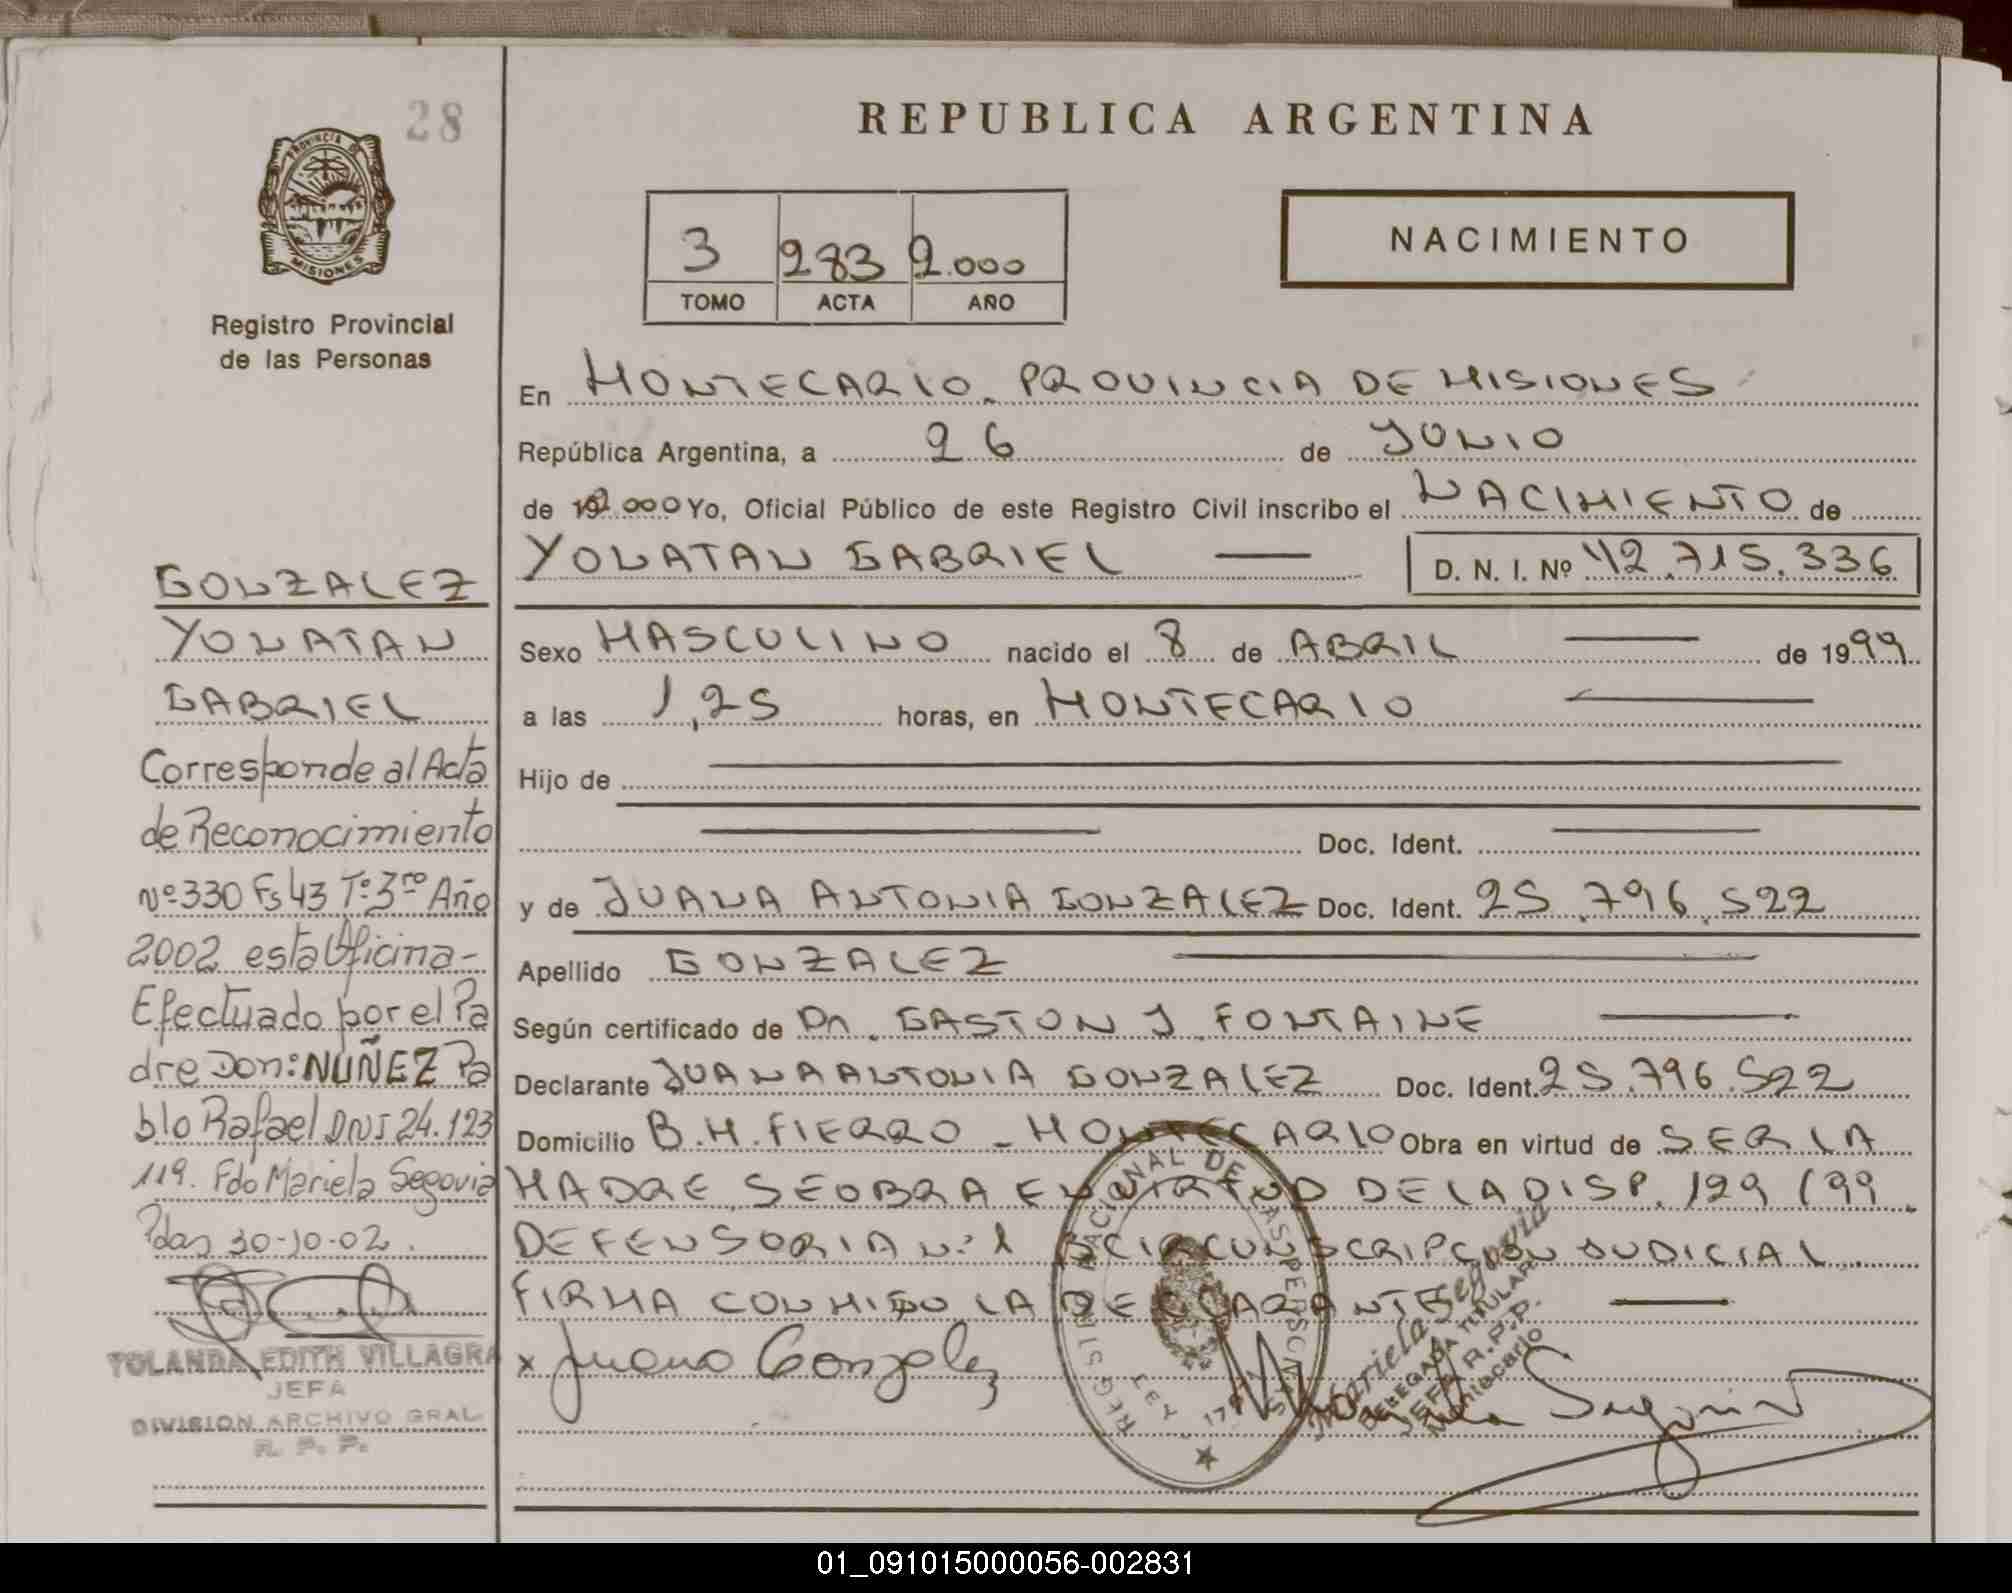 28
PROVINCIA DE
MISIONES
Registro Provincial
de las Personas
REPUBLICA ARGENTINA
3 283 2.000
TOMO ACTA AÑO
NACIMIENTO
En MONTECARLO. PROVINCIA DE MISIONES
República Argentina, a 26 de JUNIO
de 2.000 Yo, Oficial Público de este Registro Civil inscribo el NACIMIENTO de
YONATAN GABRIEL — D. N. I. Nº 42.715.336
Sexo MASCULINO nacido el 8 de ABRIL — de 1999
a las 1,25 horas, en MONTECARLO —
Hijo de —
— Doc. Ident. —
y de JUANA ANTONIA GONZALEZ Doc. Ident. 25.796.522
Apellido GONZALEZ —
Según certificado de Dr. GASTON J FONTAINE —
Declarante JUANA ANTONIA GONZALEZ Doc. Ident. 25.796.522
Domicilio B.M.FIERRO - MONTECARLO Obra en virtud de SER LA
MADRE SE OBRA EN VIRTUD DE LA DISP. 129/99
DEFENSORIA Nº 1 CIRCUNSCRIPCION JUDICIAL
FIRMA CONMIGO LA DECLARANTE —
x Juana Gonzalez
REGISTRO NACIONAL DE LAS PERSONAS
Mariela Segovia
DELEGADA TITULAR
JEFE R.P.P.
Montecarlo
GONZALEZ
YONATAN
GABRIEL
Corresponde al Acta
de Reconocimiento
Nº 330 Fs 43 Tº: 3ro Año
2002 esta Oficina-
Efectuado por el Pa
dre Don: NUÑEZ Pa
blo Rafael DNI 24.123
119. Fdo Mariela Segovia
Pdas 30-10-02.
YOLANDA EDITH VILLAGRA
JEFA
DIVISION ARCHIVO GRAL.
R. P. P.
01_091015000056-002831